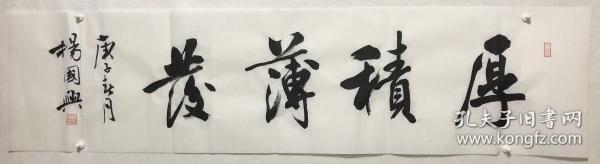 厚積薄發
庚子新月
楊國興
孔夫子旧书网
www.kongfz.com